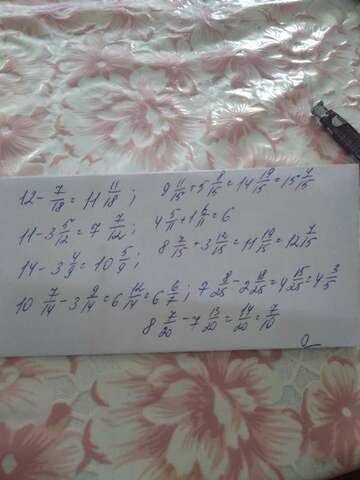 12 - 7/18 = 11 11/18 ; 9 11/15 + 5 8/15 = 14 19/15 = 15 4/15
11 - 3 5/12 = 7 7/12 ; 4 5/11 + 1 6/11 = 6
8 7/15 + 3 12/15 = 11 19/15 = 12 4/15
14 - 3 4/9 = 10 5/9 ;
10 7/14 - 3 9/14 = 6 12/14 = 6 6/7 ; 7 8/25 - 2 18/25 = 4 15/25 = 4 3/5
8 7/20 - 7 13/20 = 14/20 = 7/10